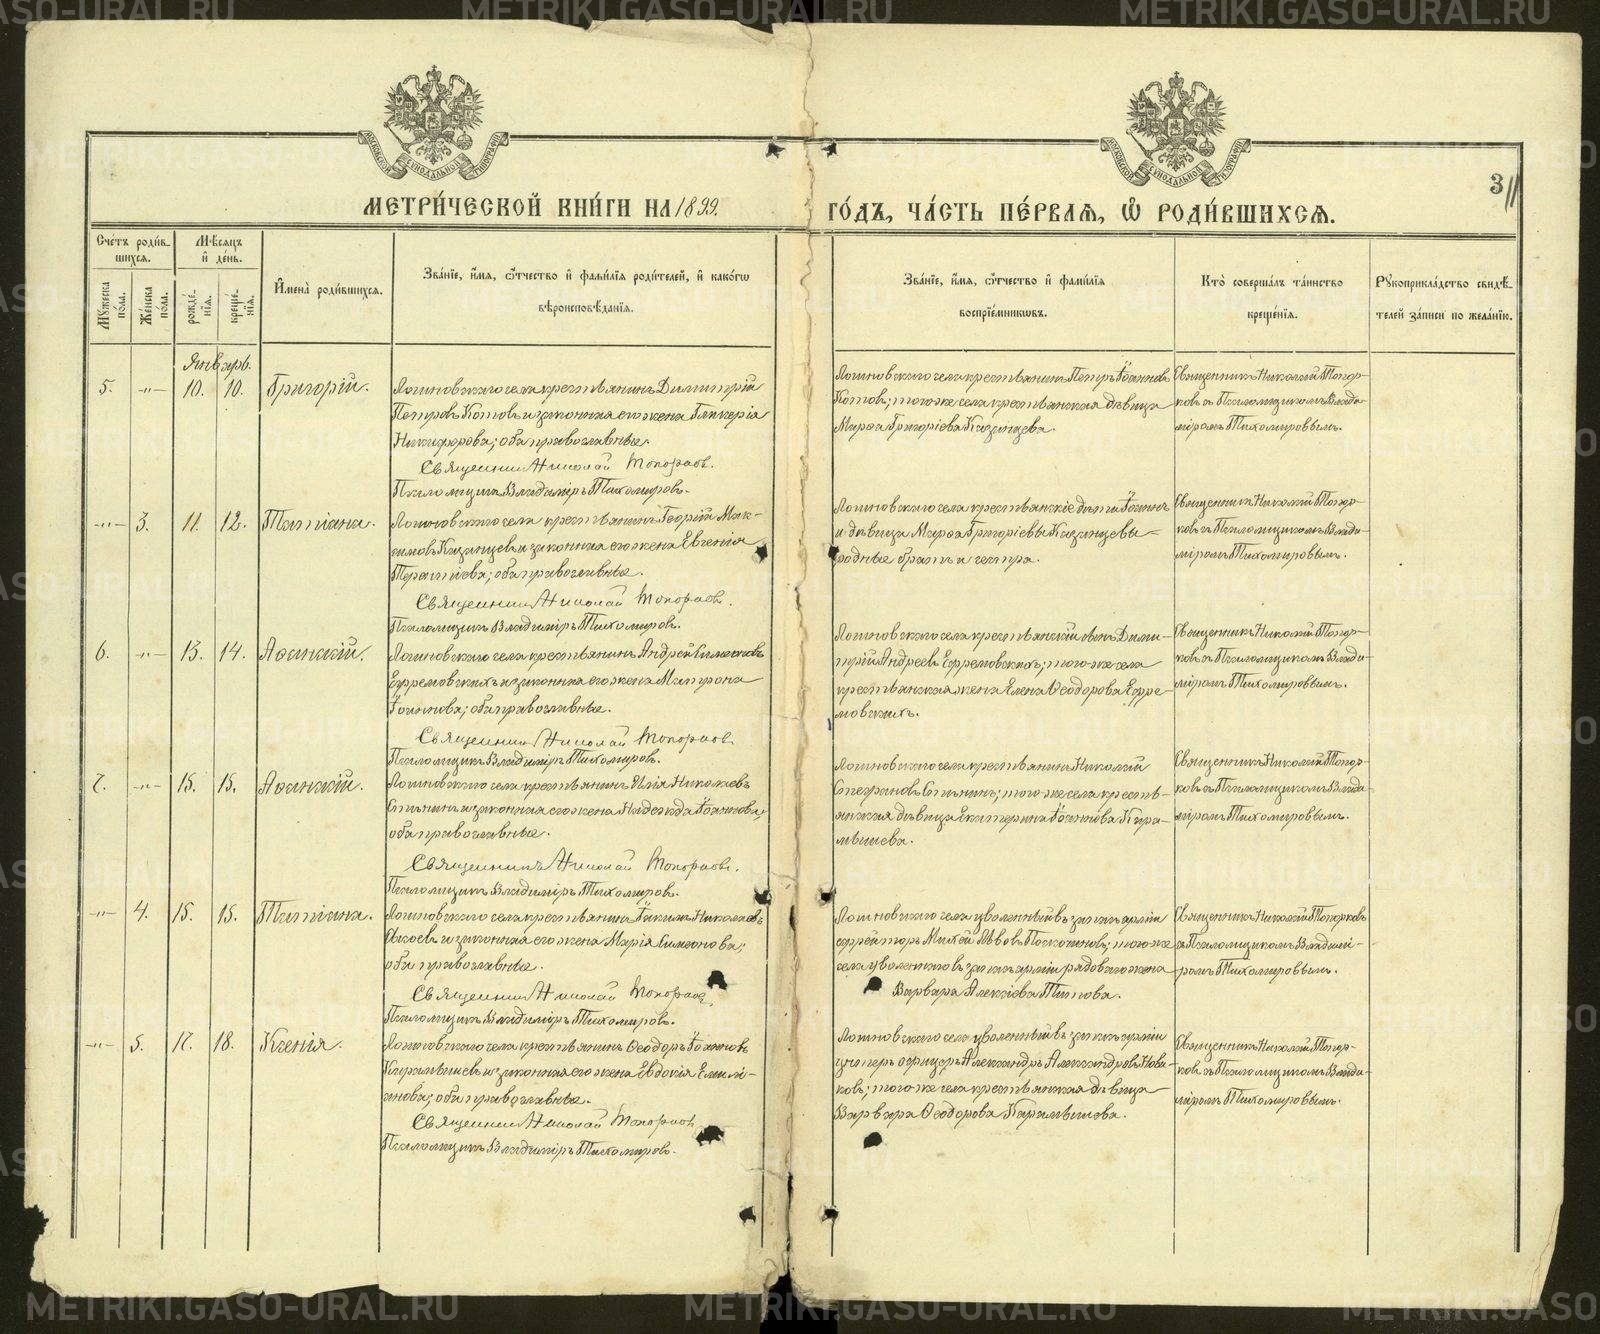 METRIKI.GASO-URAL.RU
МЕТРИ́ЧЕСКОЙ КНИ́ГИ НА 1899.
ГО́ДЪ, ЧА́СТЬ ПЕ́РВАѦ, Ѽ РОДИ́ВШИХСѦ.
3
Сче́тъ роди́в-
шихся.
Мꙋжеска по́ла.
Же́нска по́ла.
Мѣ́сяцъ
и҆ де́нь.
рожде́-
нїя.
креще́-
нїя.
И҆мена̀ роди́вшихся.
Зва́нїе, и҆́мя, ѻ҆́тчество и҆ фами́лїя роди́телей, и҆ како́гѡ
вѣроисповѣ́данїя.
Зва́нїе, и҆́мя, ѻ҆́тчество и҆ фами́лїя
воспрїе́мникѡвъ.
Кто̀ соверша́лъ та́инство
креще́нїя.
Рꙋкоприкла́дство свидѣ́-
телей за́писи по жела́нїю.
Январь.
5. -"- 10. 10. Григорій.
Логиновскаго села крестьянинъ Димитрій
Петровъ Котовъ и законная его жена Гликерія
Никифорова; оба православные.
Священникъ Николай Топорковъ.
Псаломщикъ Владиміръ Тихомировъ.
Логиновскаго села крестьянинъ Петръ Іоанновъ
Котовъ; того-же села крестьянская дѣвица
Марѳа Григоріева Казанцева.
Священникъ Николай Топор-
ковъ съ Псаломщикомъ Влади-
міромъ Тихомировымъ.
-"- 3. 11. 12. Татіана.
Логиновскаго села крестьянинъ Георгій Мак-
симовъ Казанцевъ и законная его жена Евгенія
оба православные.
Священникъ Николай Топорковъ.
Псаломщикъ Владиміръ Тихомировъ.
Логиновскаго села крестьянскіе дѣти Іоаннъ
и дѣвица Марѳа Григоріевы Казанцевы-
родные братъ и сестра.
Священникъ Николай Топор-
ковъ съ Псаломщикомъ Влади-
міромъ Тихомировымъ.
6. -"- 13. 14. Аѳанасій.
Логиновскаго села крестьянинъ Андрей Симеоновъ
Ефремовскихъ и законная его жена Матрона
Іоаннова; оба православные.
Священникъ Николай Топорковъ
Псаломщикъ Владиміръ Тихомировъ.
Логиновскаго села крестьянскій сынъ Дими-
трій Андреевъ Ефремовскихъ; того-же села
крестьянская жена Елена Ѳеодорова Ефре-
мовскихъ.
Священникъ Николай Топор-
ковъ съ Псаломщикомъ Влади-
міромъ Тихомировымъ.
7. -"- 15. 15. Аѳанасій.
Логиновскаго села крестьянинъ Илія Николаевъ
и законная его жена Надежда Іоаннова;
оба православные.
Священникъ Николай Топорковъ.
Псаломщикъ Владиміръ Тихомировъ.
Логиновскаго села крестьянинъ Николай
Стефановъ того-же села кресть-
янская дѣвица Екатерина Іоаннова Кара-
мышева.
Священникъ Николай Топор-
ковъ съ Псаломщикомъ Влади-
міромъ Тихомировымъ.
-"- 4. 15. 15. Татіана.
Логиновскаго села крестьянинъ Іакимъ Николаевъ
и законная его жена Марія Симеонова;
оба православные.
Священникъ Николай Топорковъ.
Псаломщикъ Владиміръ Тихомировъ.
Логиновскаго села уволенный въ запасъ арміи
ефрейторъ Михей Львовъ того-же
села уволеннаго въ запасъ арміи рядоваго жена
Варвара Алексіева Титова.
Священникъ Николай Топорковъ
съ Псаломщикомъ Владимі-
ромъ Тихомировымъ.
-"- 5. 17. 18. Ксенія.
Логиновскаго села крестьянинъ Ѳеодоръ Іоанновъ
Карамышевъ и законная его жена Евдокія Емилі-
анова; оба православные.
Священникъ Николай Топорковъ
Псаломщикъ Владиміръ Тихомировъ.
Логиновскаго села уволенный въ запасъ арміи
унтеръ офицеръ Александръ Александровъ Нови-
ковъ; того-же села крестьянская дѣвица
Варвара Ѳеодорова Карамышева.
Священникъ Николай Топор-
ковъ съ Псаломщикомъ Влади-
міромъ Тихомировымъ.